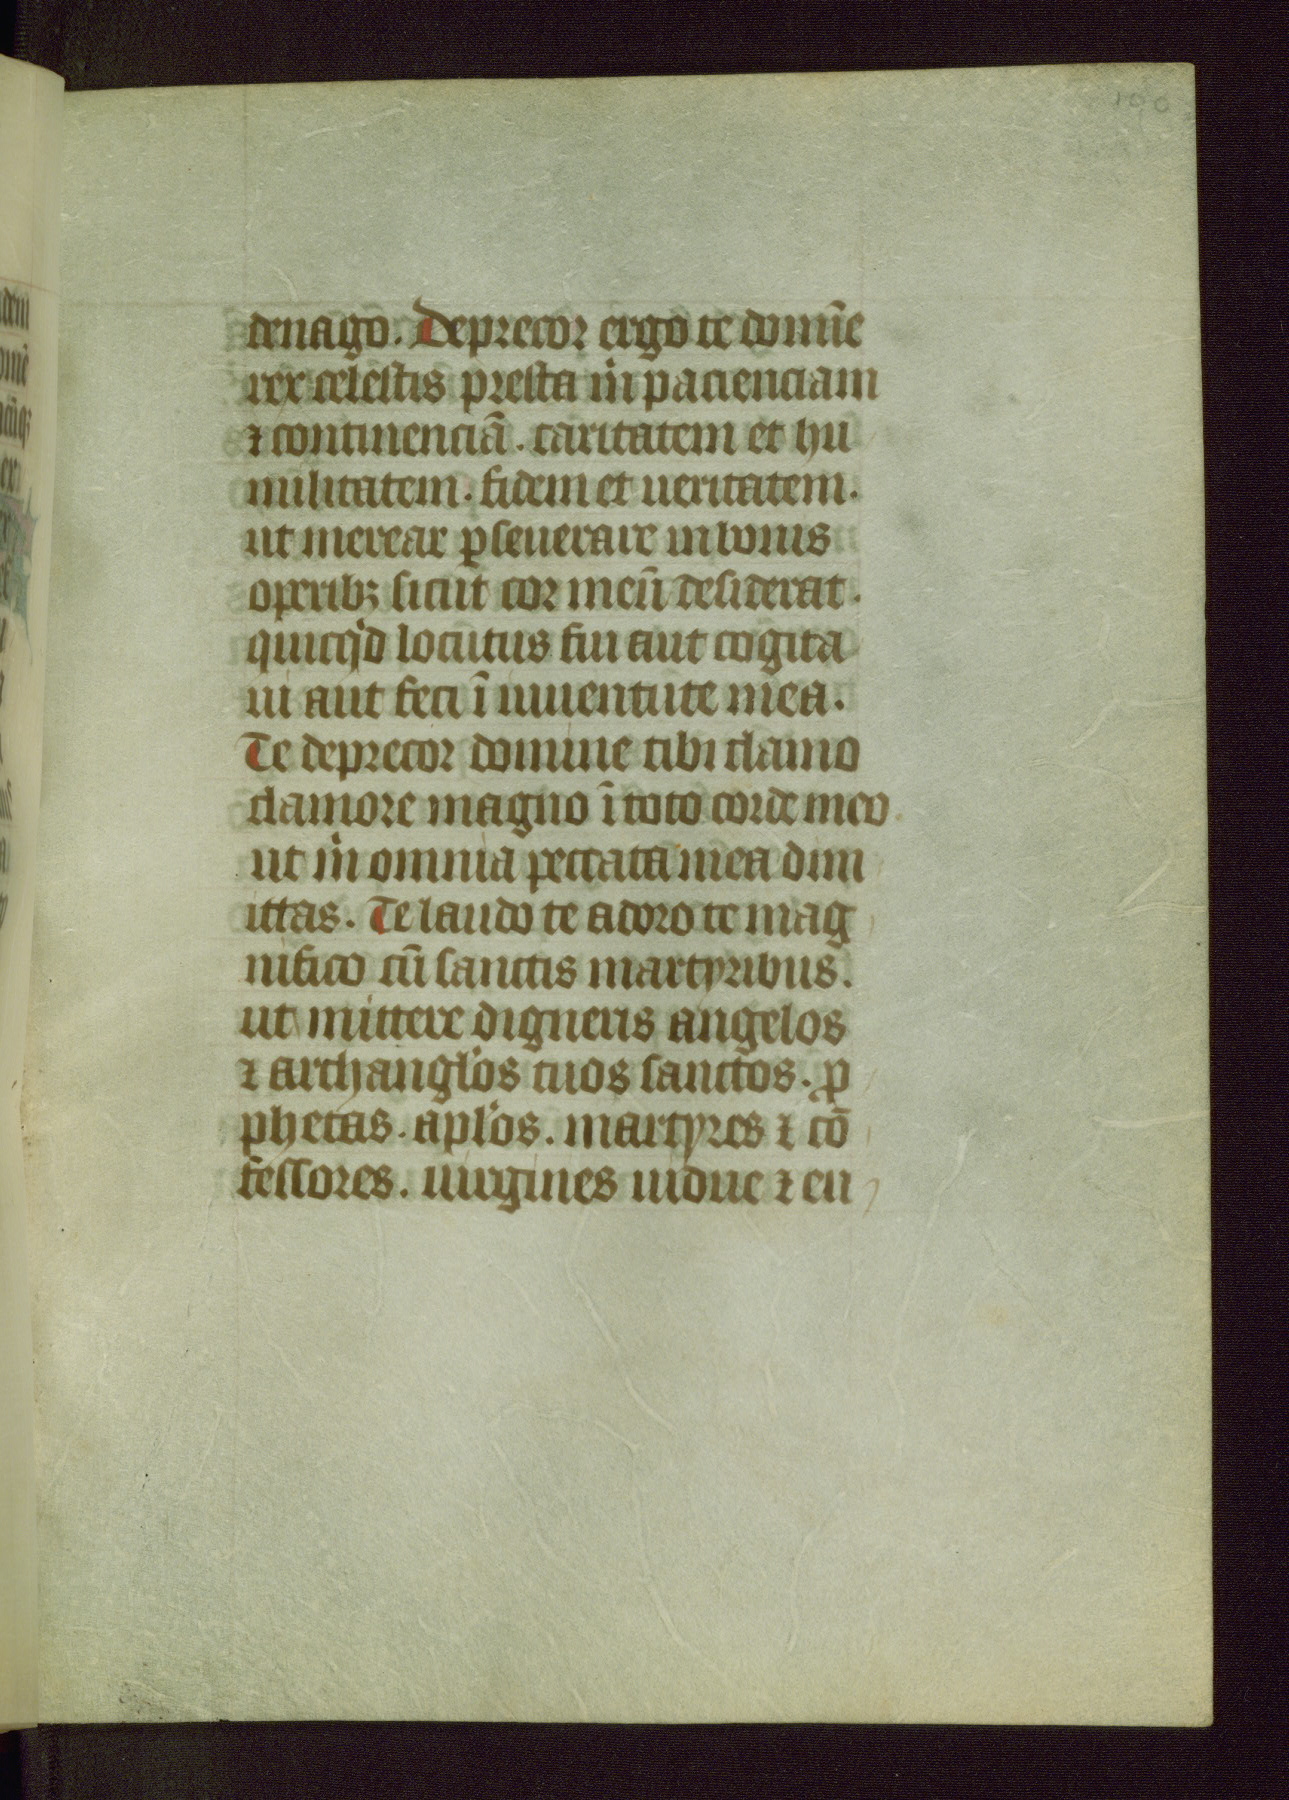 100
denago. Deprecor ergo te domīe
rex celestis presta m̉ pacienciam
⁊ continenciā. caritatem et hu
militatem. fidem et ueritatem.
ut merear ꝑseuerare in bonis
operibꝫ sicut cor meū desiderat.
quicq̉d locutus fui aut cogita
ui aut feci ī iuuentute mea.
Te deprecor domine tibi clamo
clamore magno ī toto corde meo
ut m̉ omnia peccata mea dim
ittas. Te laudo te adoro te mag
nifico cū sanctis martyribus.
ut mittere digneris angelos
⁊ archangl̓os tuos sanctos. ꝓ
phetas. apl̓os. martyres ⁊ cō
fessores. uirgines uidue ⁊ eu